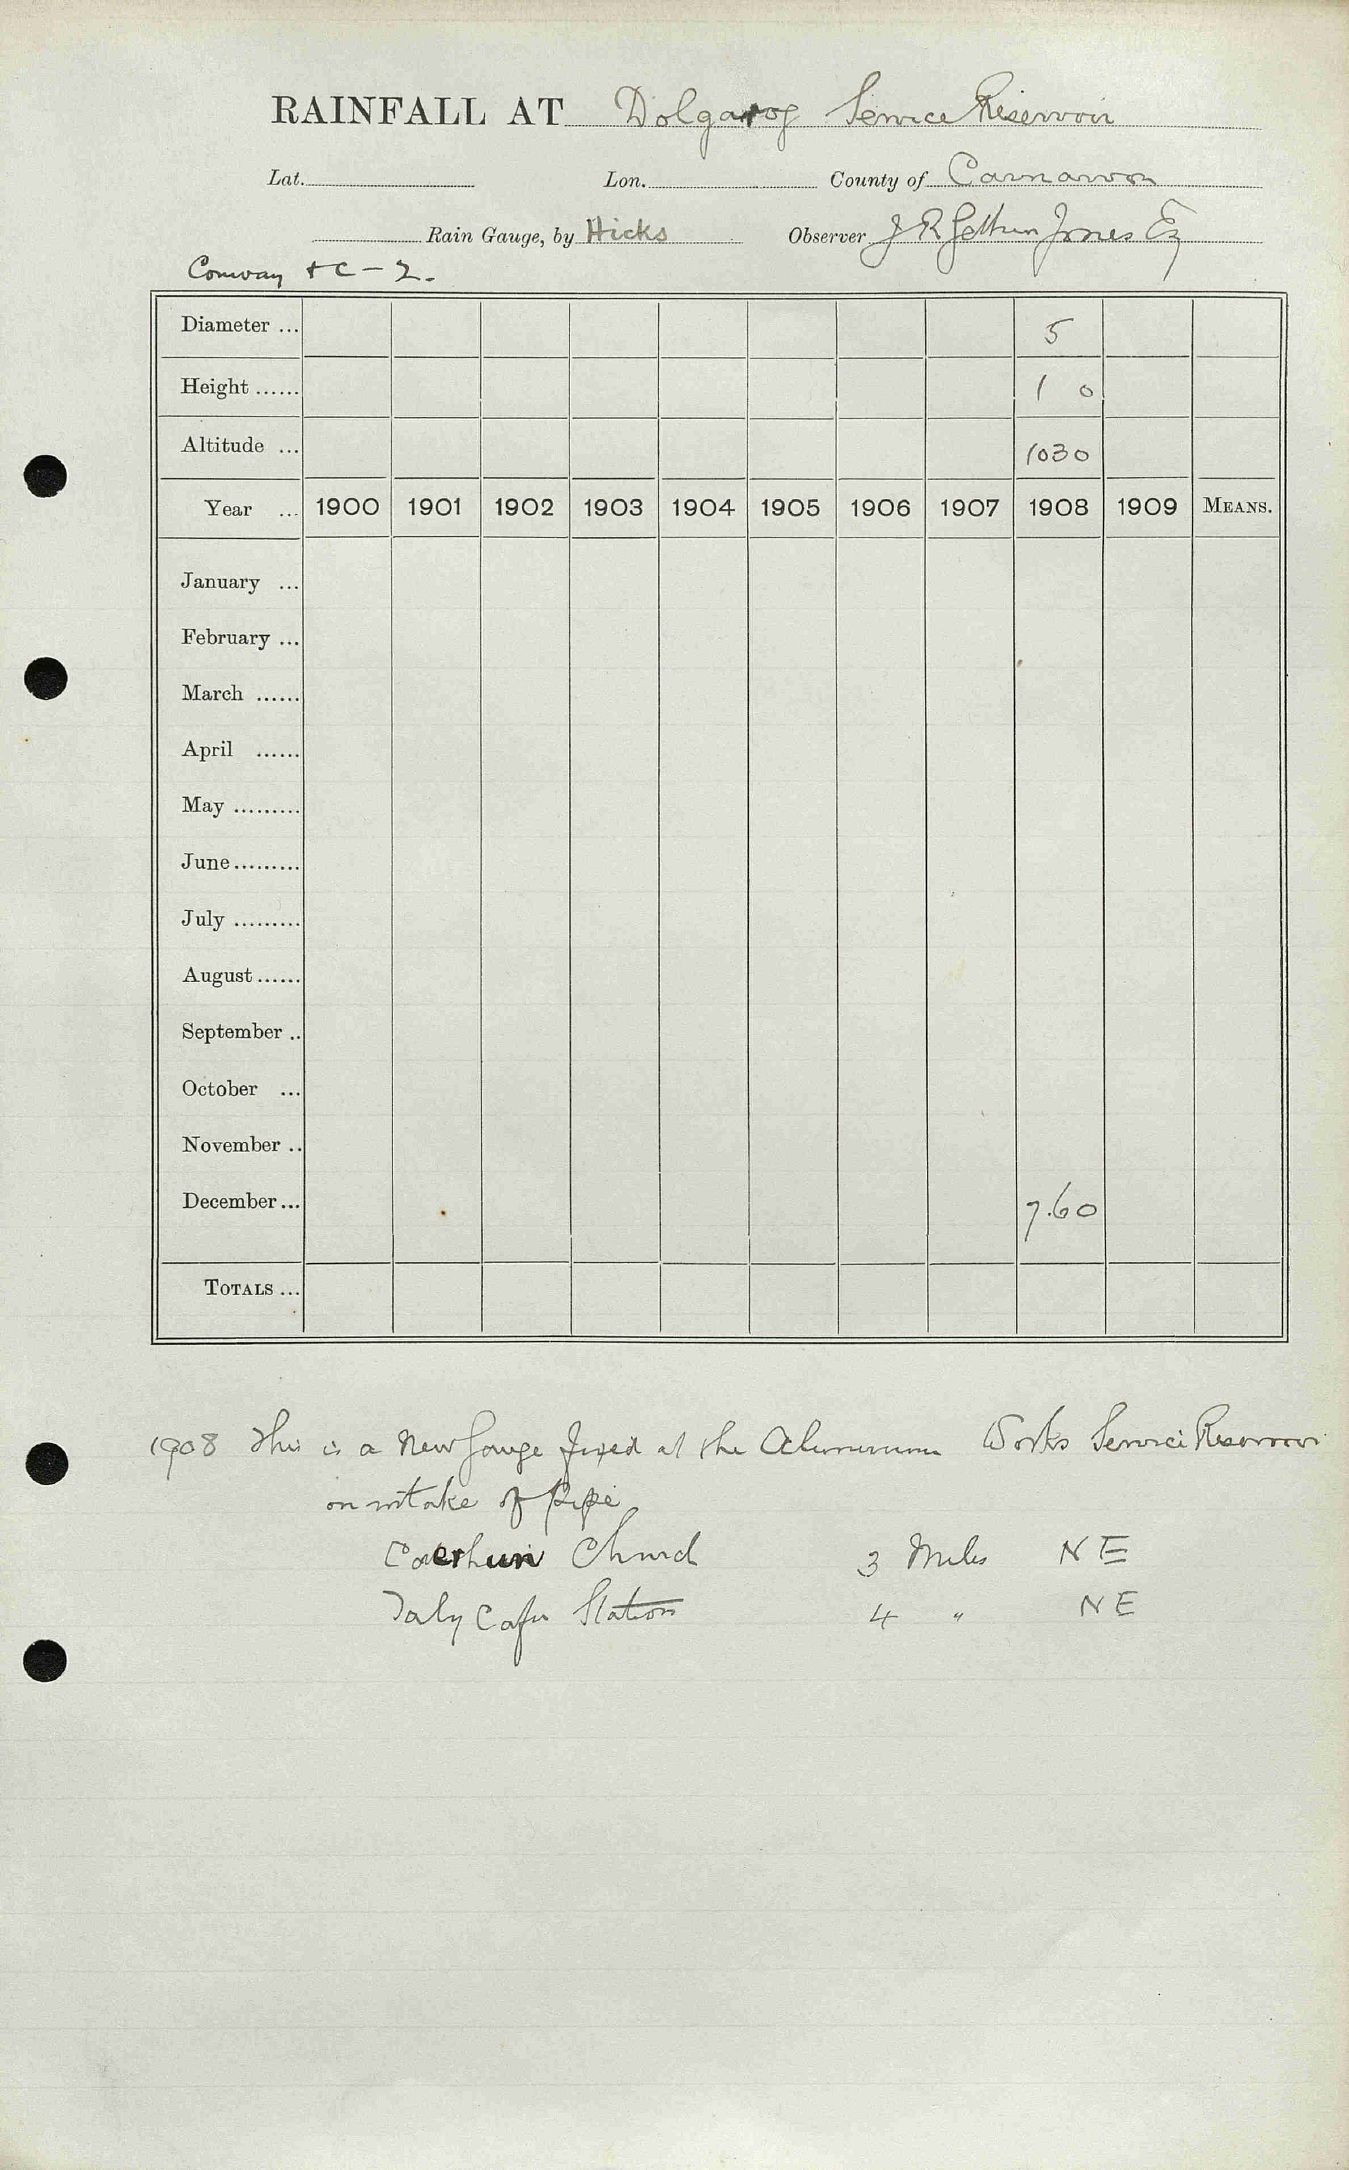 RAINFALL AT Dolgarog Service Reservoir
Lat. Lon. County of Carnarvon
Rain Gauge, by Hicks Observer J R Gethin Jones Esq
Conway &c - 2.
Diameter ... 5
Height ...... 1 0
Altitude ... 1030
Year ... 1900 1901 1902 1903 1904 1905 1906 1907 1908 1909 MEANS.
January ...
February ...
March ......
April ......
May .........
June .........
July .........
August ......
September ..
October ...
November ..
December ... 7.60
TOTALS ...
1908 This is a New Gauge fixed at the Aluminium Works Service Reservoir
on intake of Pipe
Caerhun Church 3 Miles NE
Taly Cafn Station 4 " NE